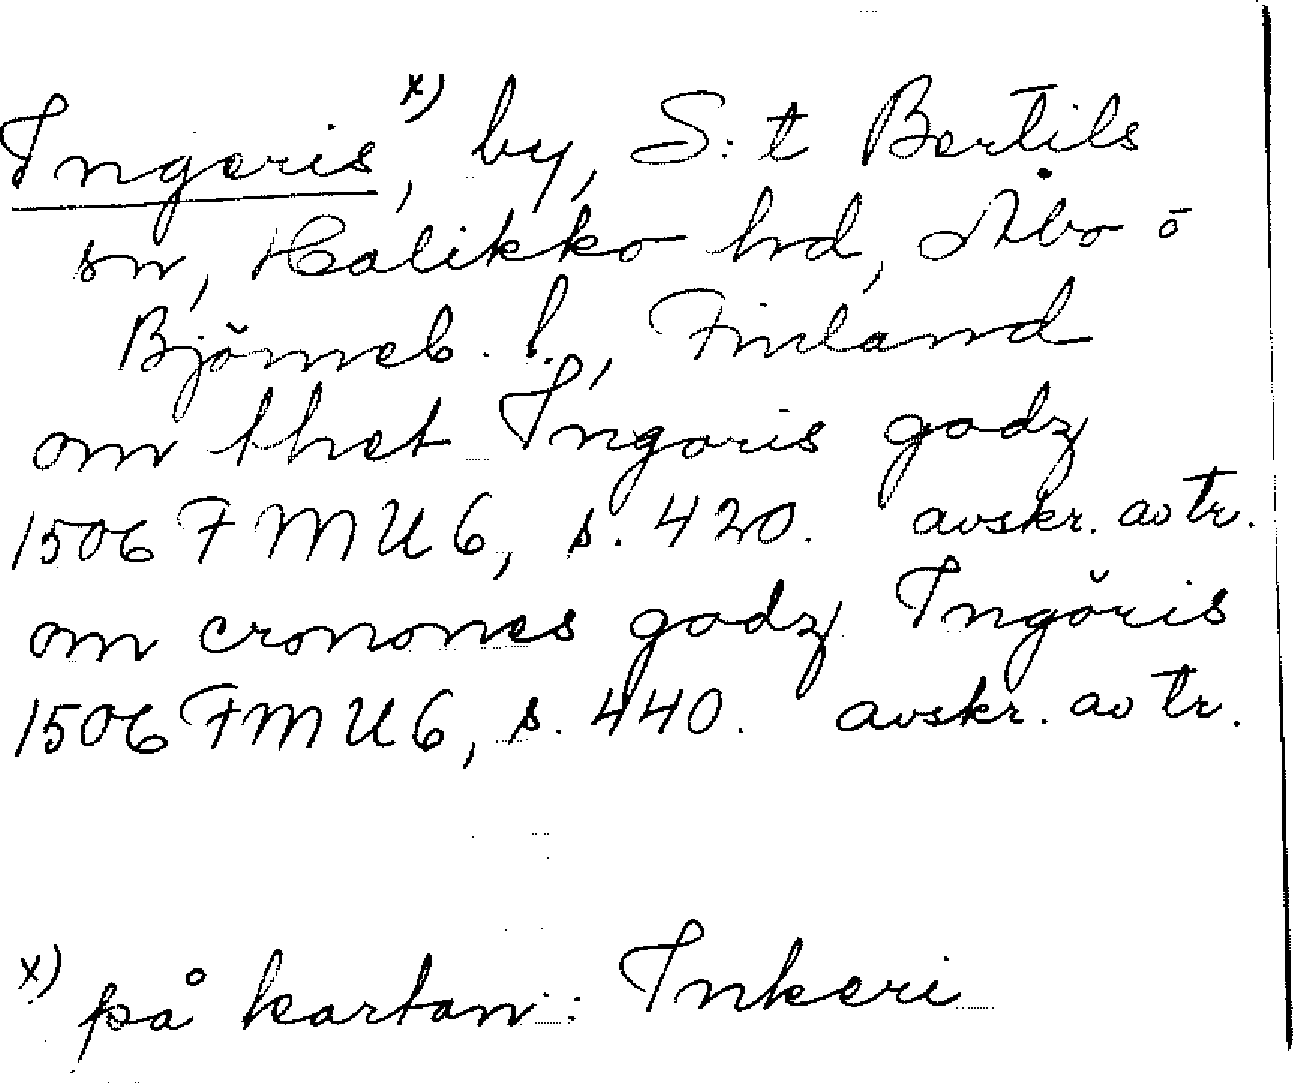 Ingeris x), by, S:t Bertils
sn, Halikko hd, Åbo o
Björneb. l., Finland
om thet Ingoris godz
1506 FMU 6, s. 420. avskr. av tr.
om cronones godz Ingöris
1506 FMU 6, s. 440. avskr. av tr.
x) på kartan: Inkeri